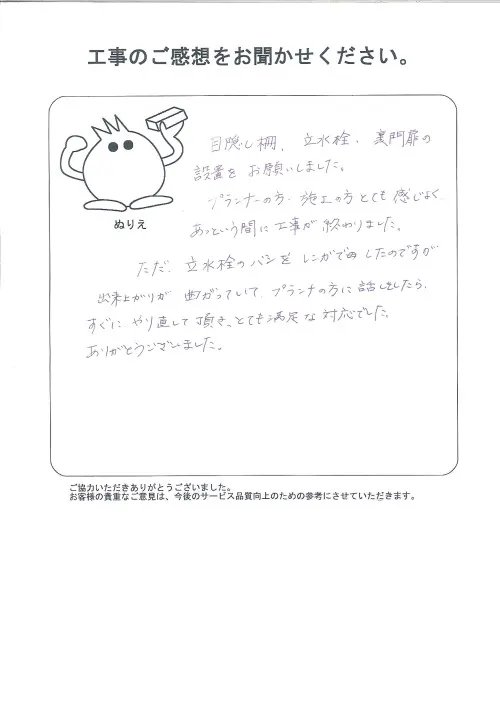 工事のご感想をお聞かせください。
目隠し柵、立水栓、裏門扉の
設置をお願いしました。
プランナーの方、施工の方とても感じよく
あっという間に工事が終わりました。
ただ、立水栓のパンをレンガで囲したのですが
出来上がりが曲がっていて、プランナの方に話しをしたら、
すぐにやり直して頂き、とても満足な対応でした。
ありがとうございました。
ぬりえ
ご協力いただきありがとうございました。
お客様の貴重なご意見は、今後のサービス品質向上のための参考にさせていただきます。